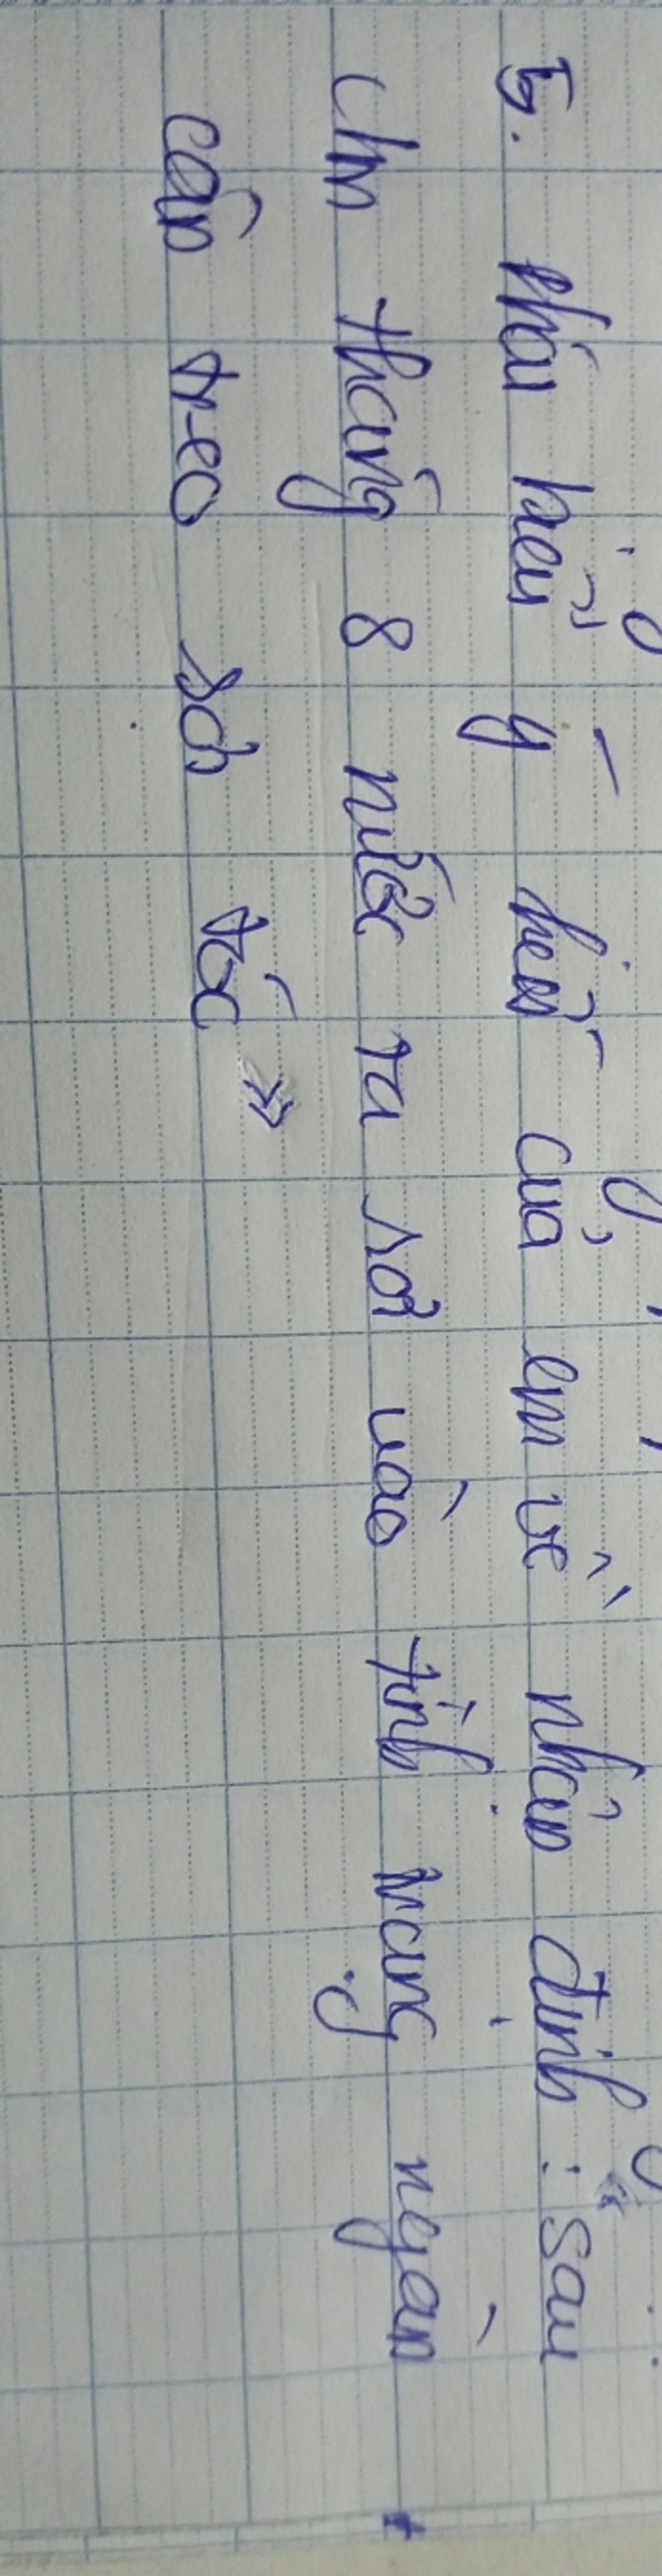 5. Phát biểu ý kiến của em về nhận định : "Sau
CM tháng 8 nước ta rơi vào tình trạng ngàn
cân treo sợi tóc »